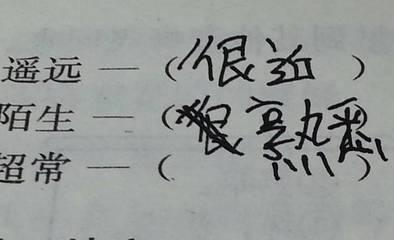 遥远 — (很近)
陌生 — (很熟悉)
超常 — ( )